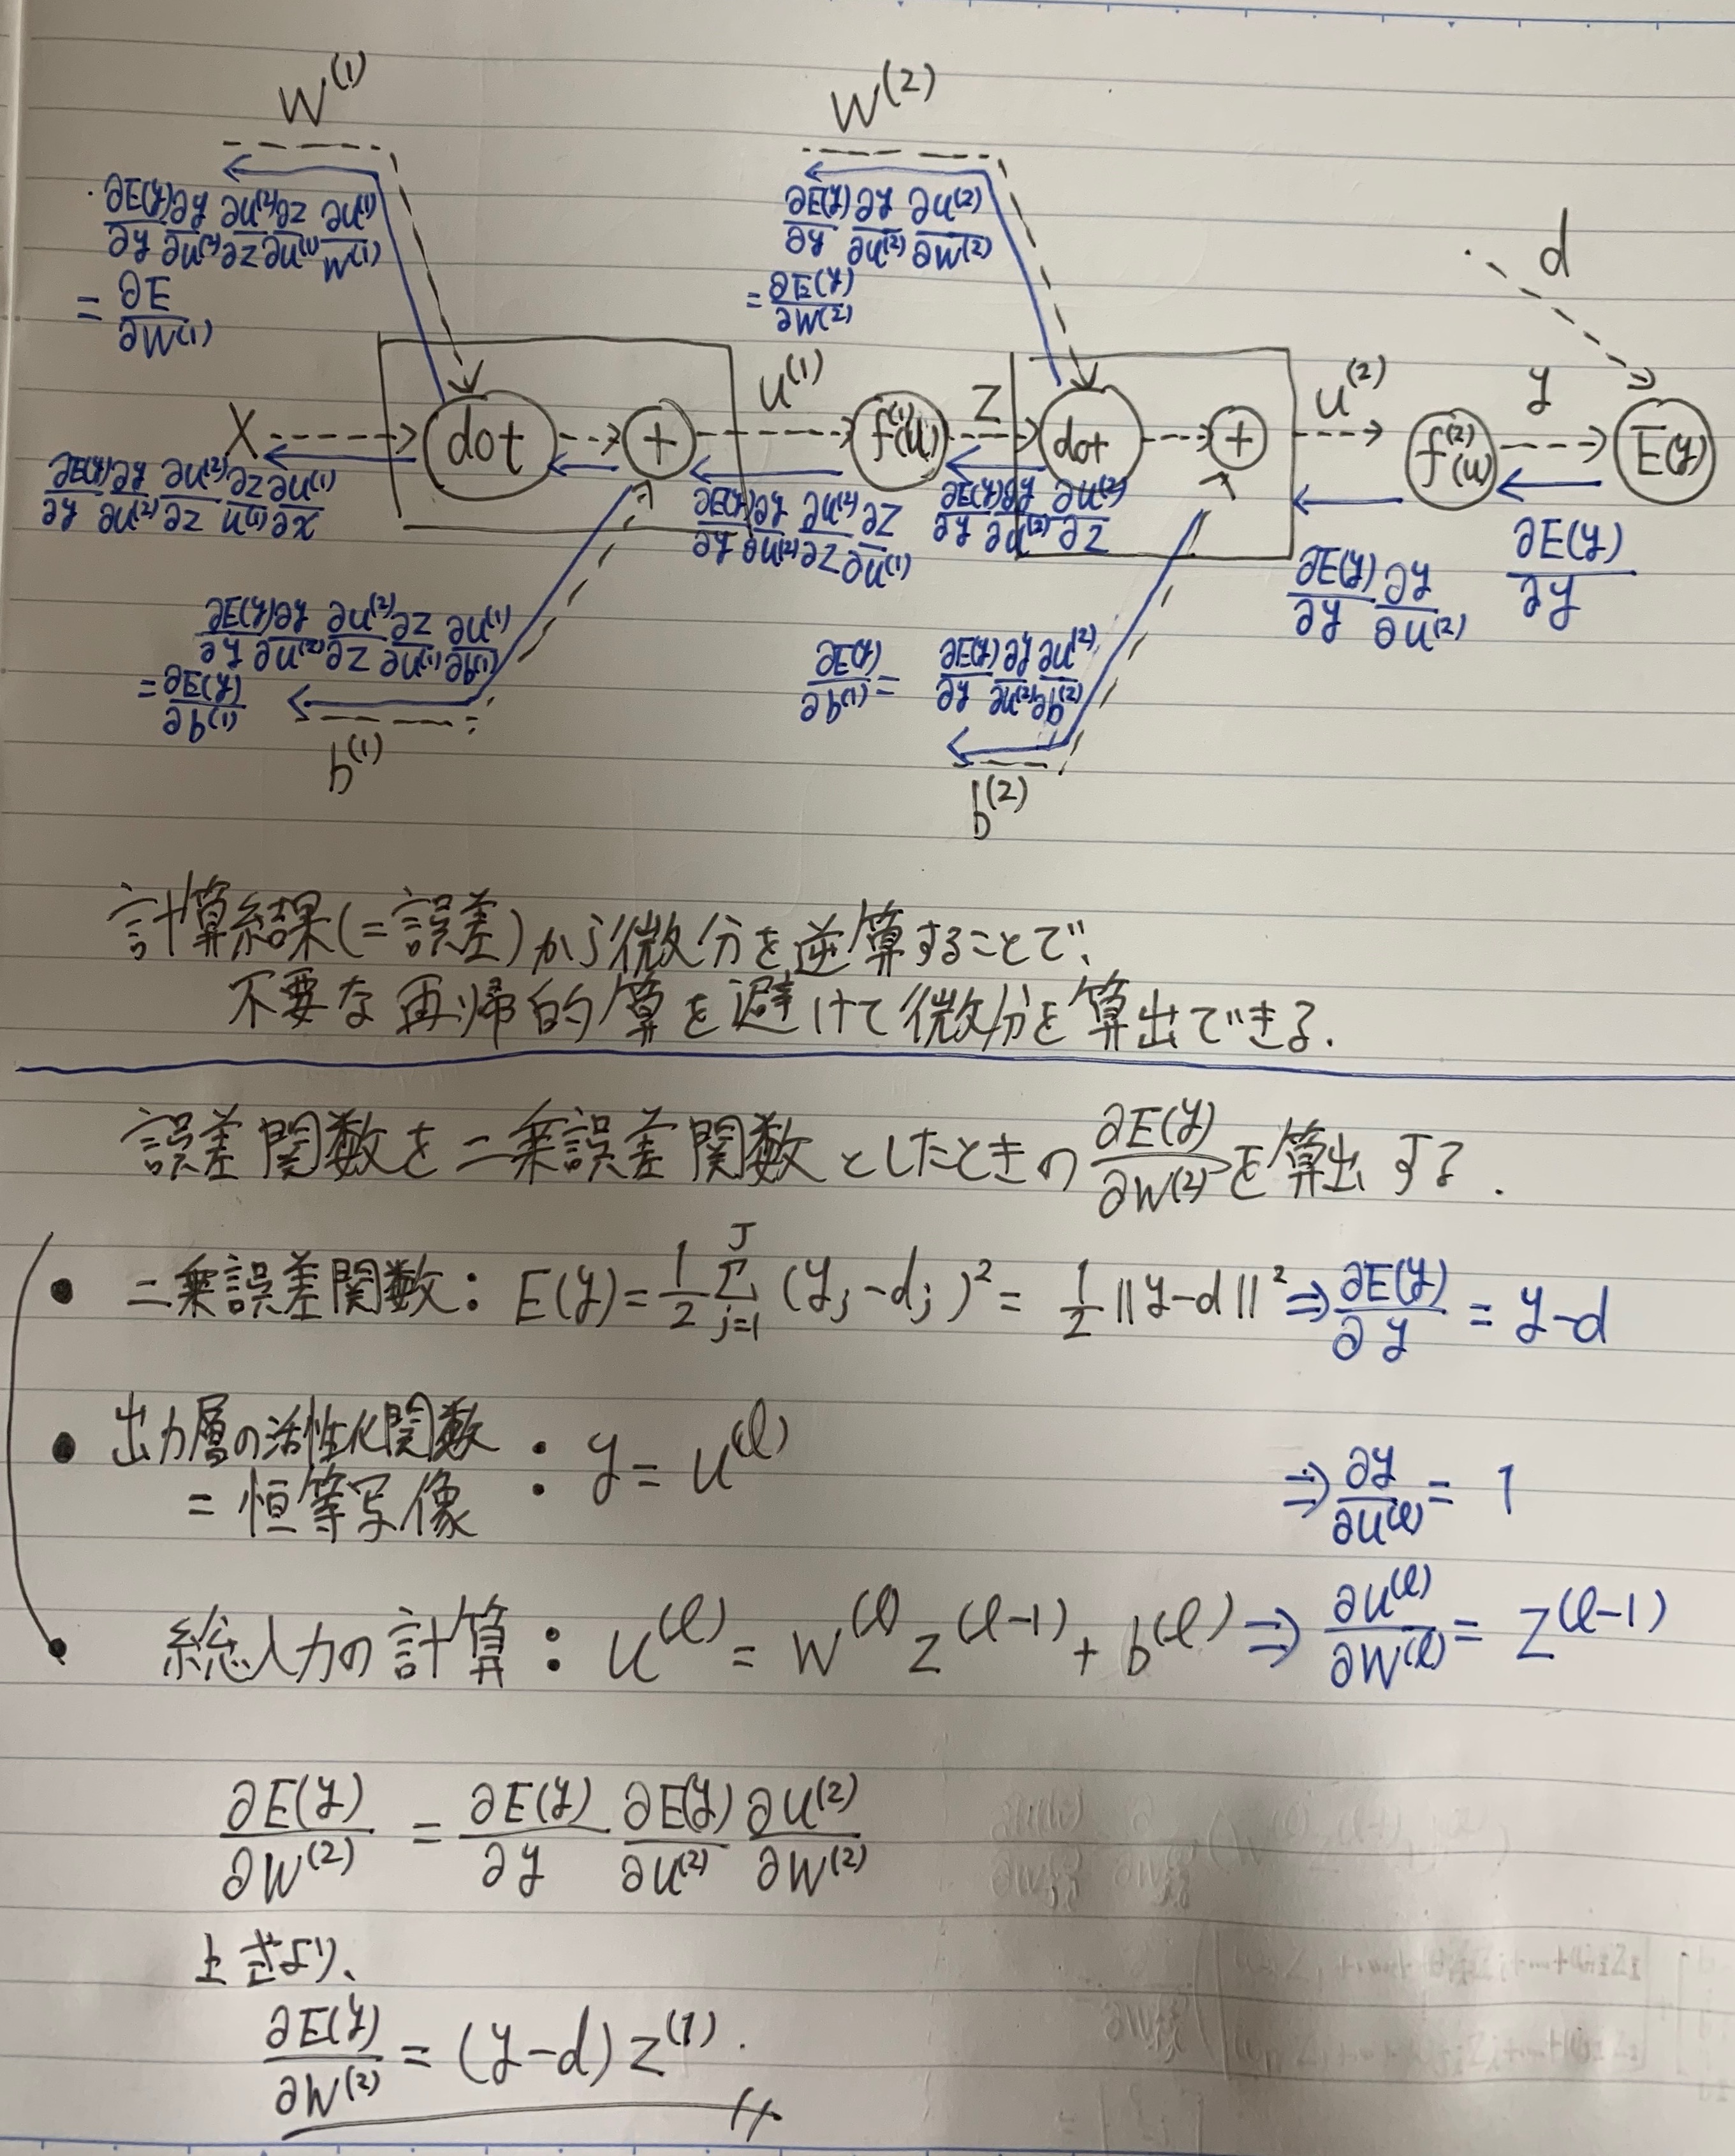 W^(1) W^(2)
∂E(y)/∂y ∂y/∂u^(2) ∂u^(2)/∂z ∂z/∂u^(1) ∂u^(1)/W^(1)
= ∂E/∂W^(1)
∂E(y)/∂y ∂y/∂u^(2) ∂u^(2)/∂W^(2)
= ∂E(y)/∂W^(2)
d
X dot + u^(1) f^(1)(u) z dot + u^(2) f^(2)(u) y E(y)
∂E(y)/∂y ∂y/∂u^(2) ∂u^(2)/∂z ∂z/u^(1) ∂u^(1)/∂x
∂E(y)/∂y ∂y/∂u^(2) ∂u^(2)/∂z ∂z/∂u^(1)
∂E(y)/∂y ∂y/∂u^(2) ∂u^(2)/∂z
∂E(y)/∂y ∂y/∂u^(2)
∂E(y)/∂y
∂E(y)/∂y ∂y/∂u^(2) ∂u^(2)/∂z ∂z/∂u^(1) ∂u^(1)/∂b^(1)
= ∂E(y)/∂b^(1)
b^(1)
∂E(y)/∂b^(1) = ∂E(y)/∂y ∂y/∂u^(2) ∂u^(2)/∂b^(2)
b^(2)
計算結果(=誤差)から微分を逆算することで、
不要な再帰的算を避けて微分を算出できる.
誤差関数を二乗誤差関数としたときの ∂E(y)/∂W^(2) を算出する.
• 二乗誤差関数: E(y) = 1/2 Σ_{j=1}^{J} (y_j - d_j)^2 = 1/2 ||y-d||^2 ⇒ ∂E(y)/∂y = y-d
• 出力層の活性化関数 : y = u^(l) ⇒ ∂y/∂u^(l) = 1
= 恒等写像
• 総入力の計算: u^(l) = W^(l) z^(l-1) + b^(l) ⇒ ∂u^(l)/∂W^(l) = z^(l-1)
∂E(y)/∂W^(2) = ∂E(y)/∂y ∂E(y)/∂u^(2) ∂u^(2)/∂W^(2)
∂E(y)/∂W^(2) = (y-d) z^(1).